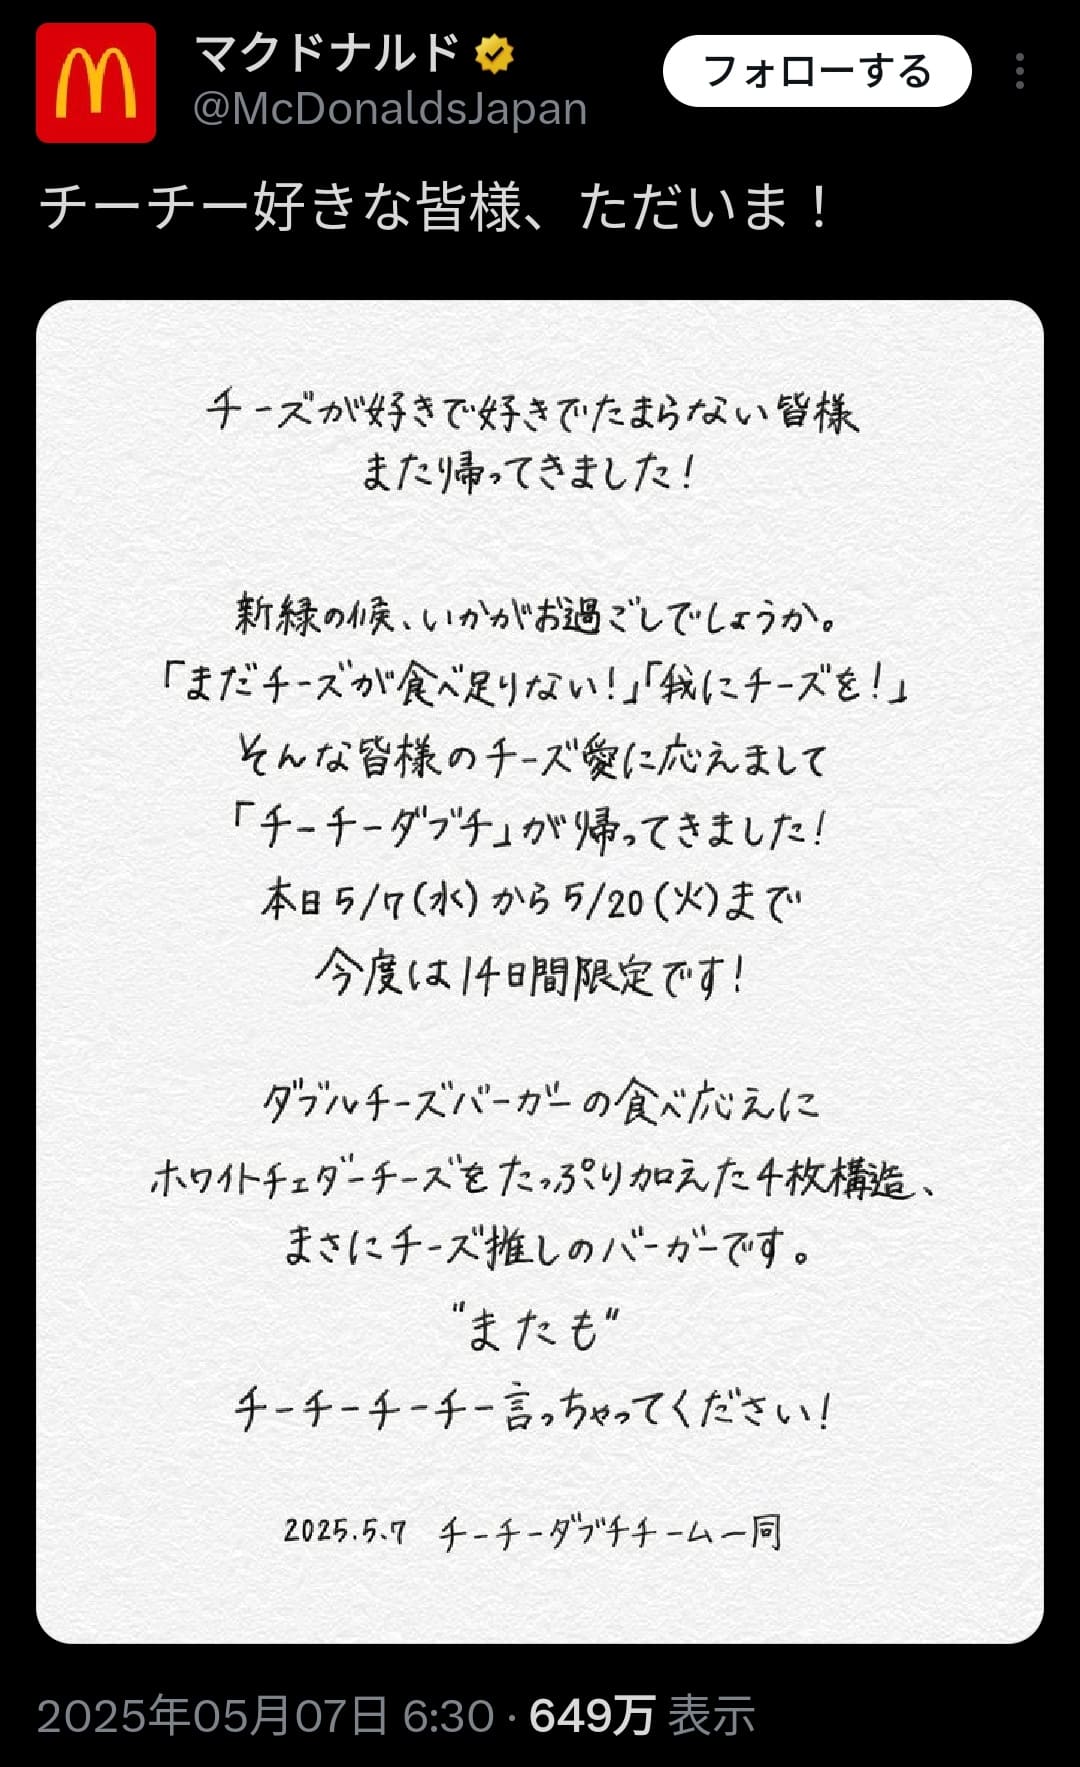 マクドナルド
@McDonaldsJapan
フォローする
チーチー好きな皆様、ただいま！
チーズが好きで好きでたまらない皆様
またり帰ってきました！
新緑の候、いかがお過ごしでしょうか。
「まだチーズが食べ足りない！」「我にチーズを！」
そんな皆様のチーズ愛に応えまして
「チーチーダブチ」が帰ってきました！
本日5/7(水)から5/20(火)まで
今度は14日間限定です！
ダブルチーズバーガーの食べ応えに
ホワイトチェダーチーズをたっぷり加えた4枚構造、
まさにチーズ推しのバーガーです。
"またも"
チーチーチーチー言っちゃってください！
2025.5.7 チーチーダブチチーム一同
2025年05月07日 6:30 · 649万 表示